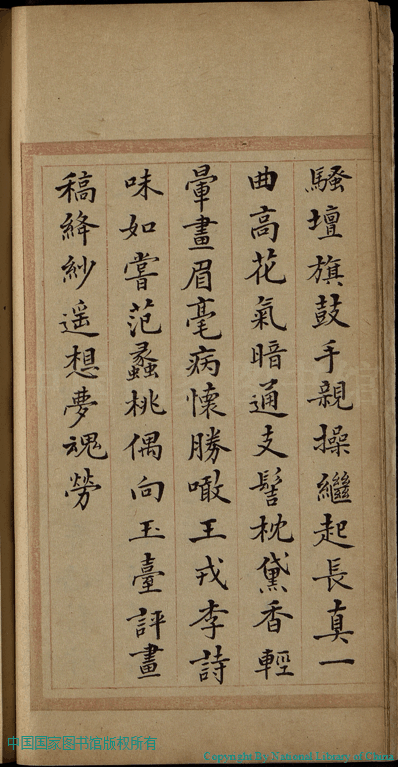 騷壇旗鼓手親操繼起長真一
曲高花氣暗通支髻枕黛香輕
暈畫眉毫病懷勝噉王戎李詩
味如嘗范蠡桃偶向玉臺評畫
稿絳紗遥想夢魂勞
中国国家图书馆版权所有
Copyright By National Library of China